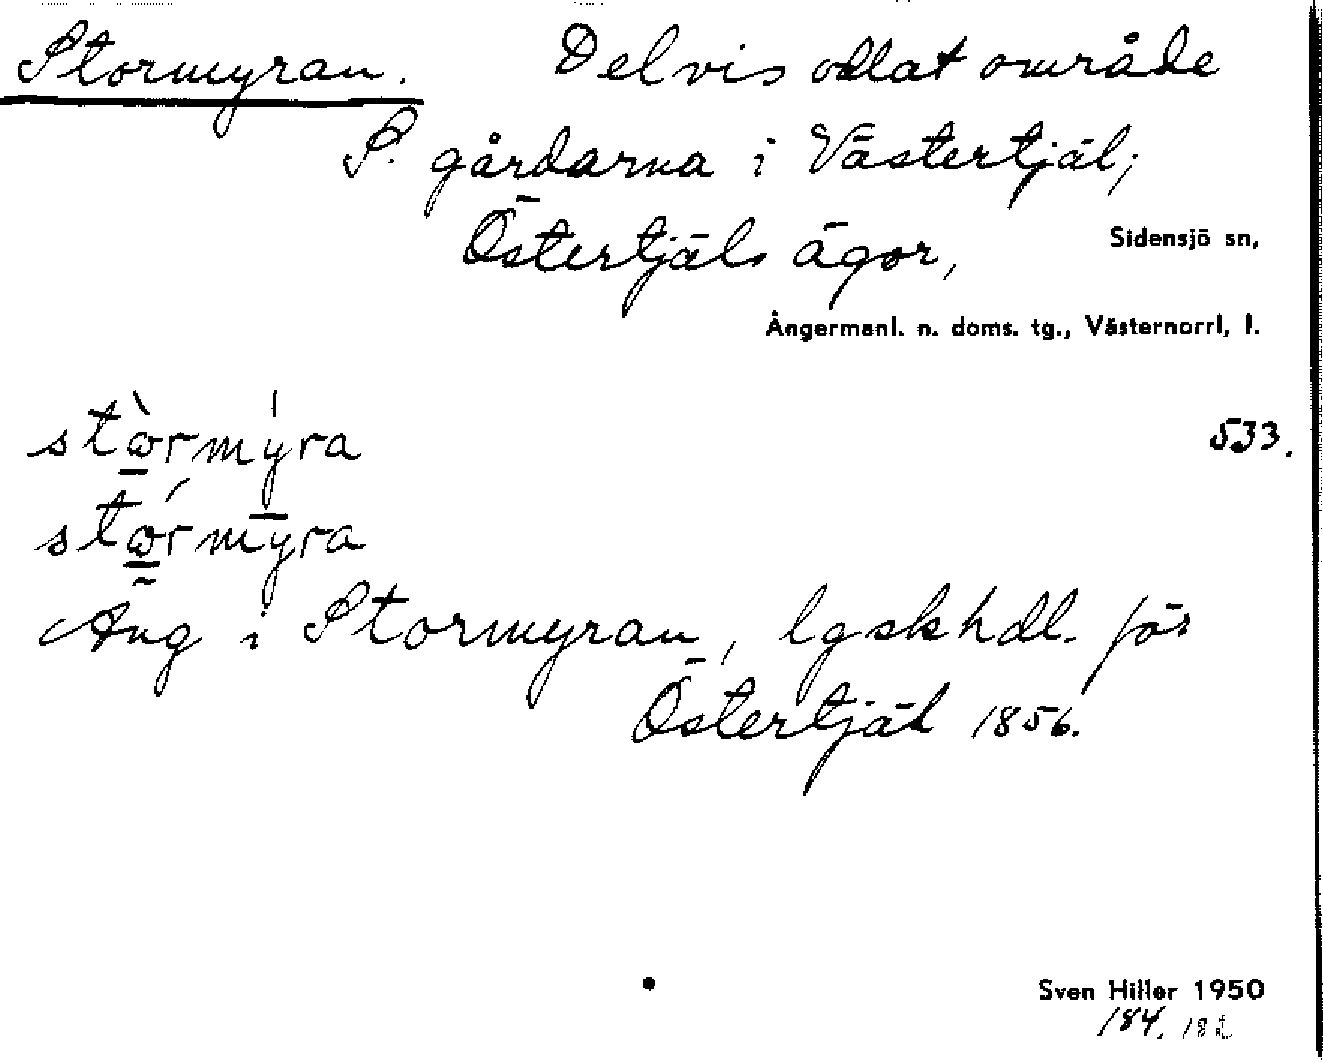 Stormyran. Delvis odlat område
S. gårdarna i Västertjäl;
Östertjäls ägor,
Sidensjö sn,
Ångermanl. n. doms. tg., Västernorrl. l.
stòrmýra
533.
stórmyra
Äng i Stormyran, lgskhdl. för
Östertjäl 1856.
Sven Hiller 1950
184. 182